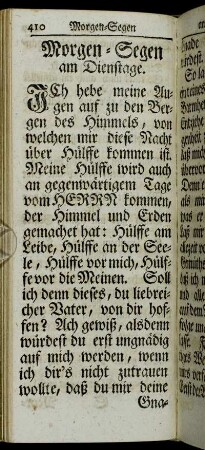 410 Morgen-Segen
Morgen-Segen
am Dienstage.
ICh hebe meine Au-
gen auf zu den Ber-
gen des Himmels, von
welchen mir diese Nacht
über Hülffe kommen ist.
Meine Hülffe wird auch
an gegenwärtigem Tage
vom HERRN kommen,
der Himmel und Erden
gemachet hat: Hülffe am
Leibe, Hülffe an der See-
le, Hülffe vor mich, Hülf-
fe vor die Meinen. Soll
ich denn dieses, du liebrei-
cher Vater, von dir hof-
fen? Ach gewiß, alsdenn
würdest du erst ungnädig
auf mich werden, wenn
ich dir's nicht zutrauen
wollte, daß du mir deine
Gna-